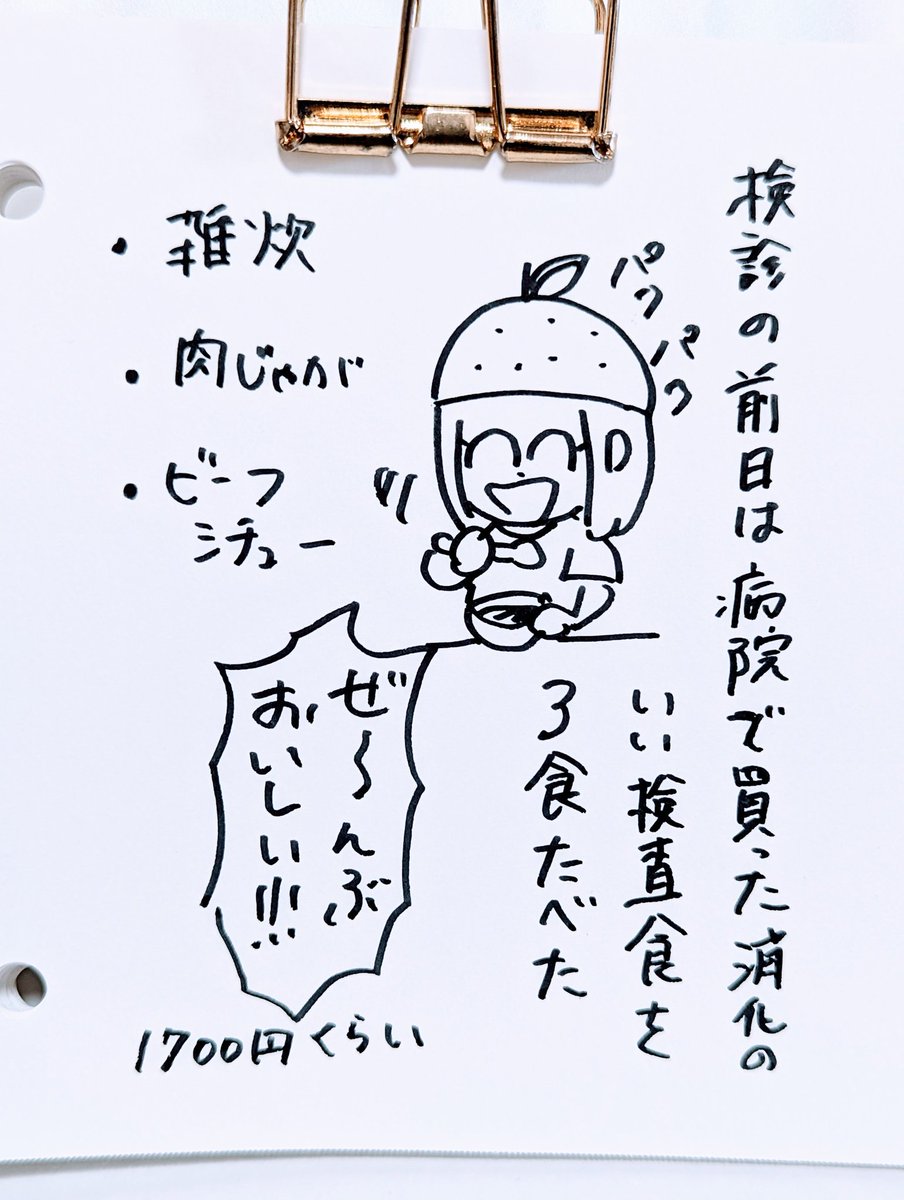 検診の前日は病院で買った消化の
いい検査食を
3食たべた
パク
パク
・雑炊
・肉じゃが
・ビーフ
シチュー
ぜ〜んぶ
おいしい!!!
1700円くらい